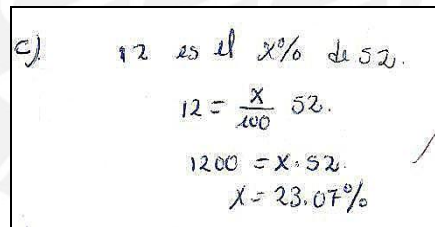 c). 12 es el x% de 52.
12 = x/100 52.
1200 = x · 52.
x = 23.07%